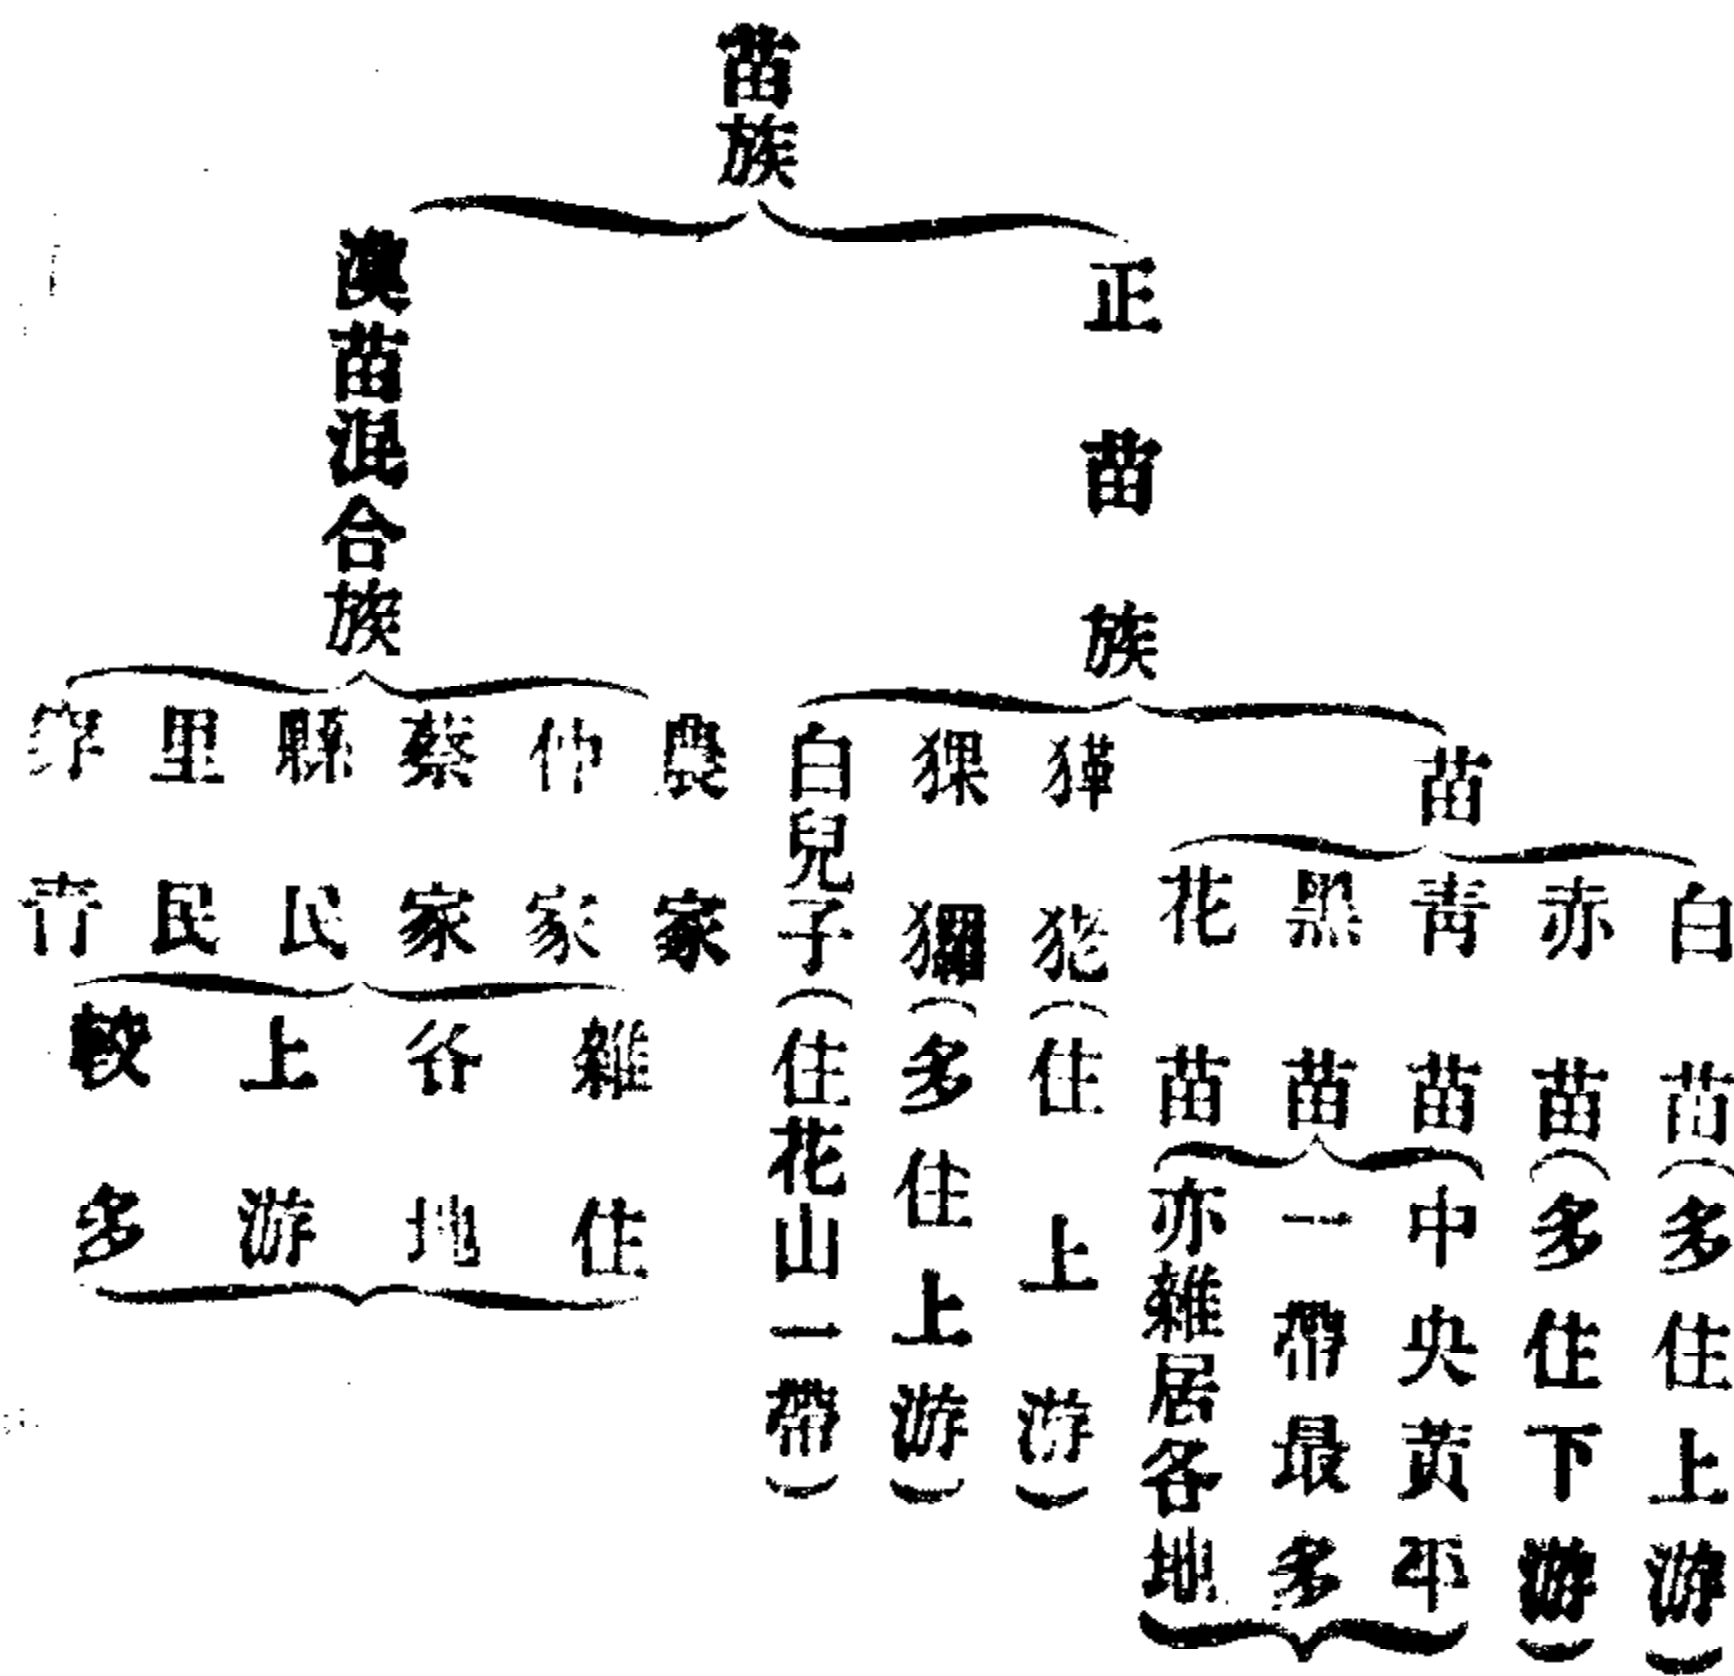 苗族
正苗族
苗
白苗(多住上游)
赤苗(多住下游)
青苗
黑苗
花苗
中央黃平
一帶最多
亦雜居各地
狆狫(住上游)
猓玀(多住上游)
白兒子(住花山一帶)
漢苗混合族
農家
仲家
蔡家
縣民
里民
雜住
各地
上游
較多